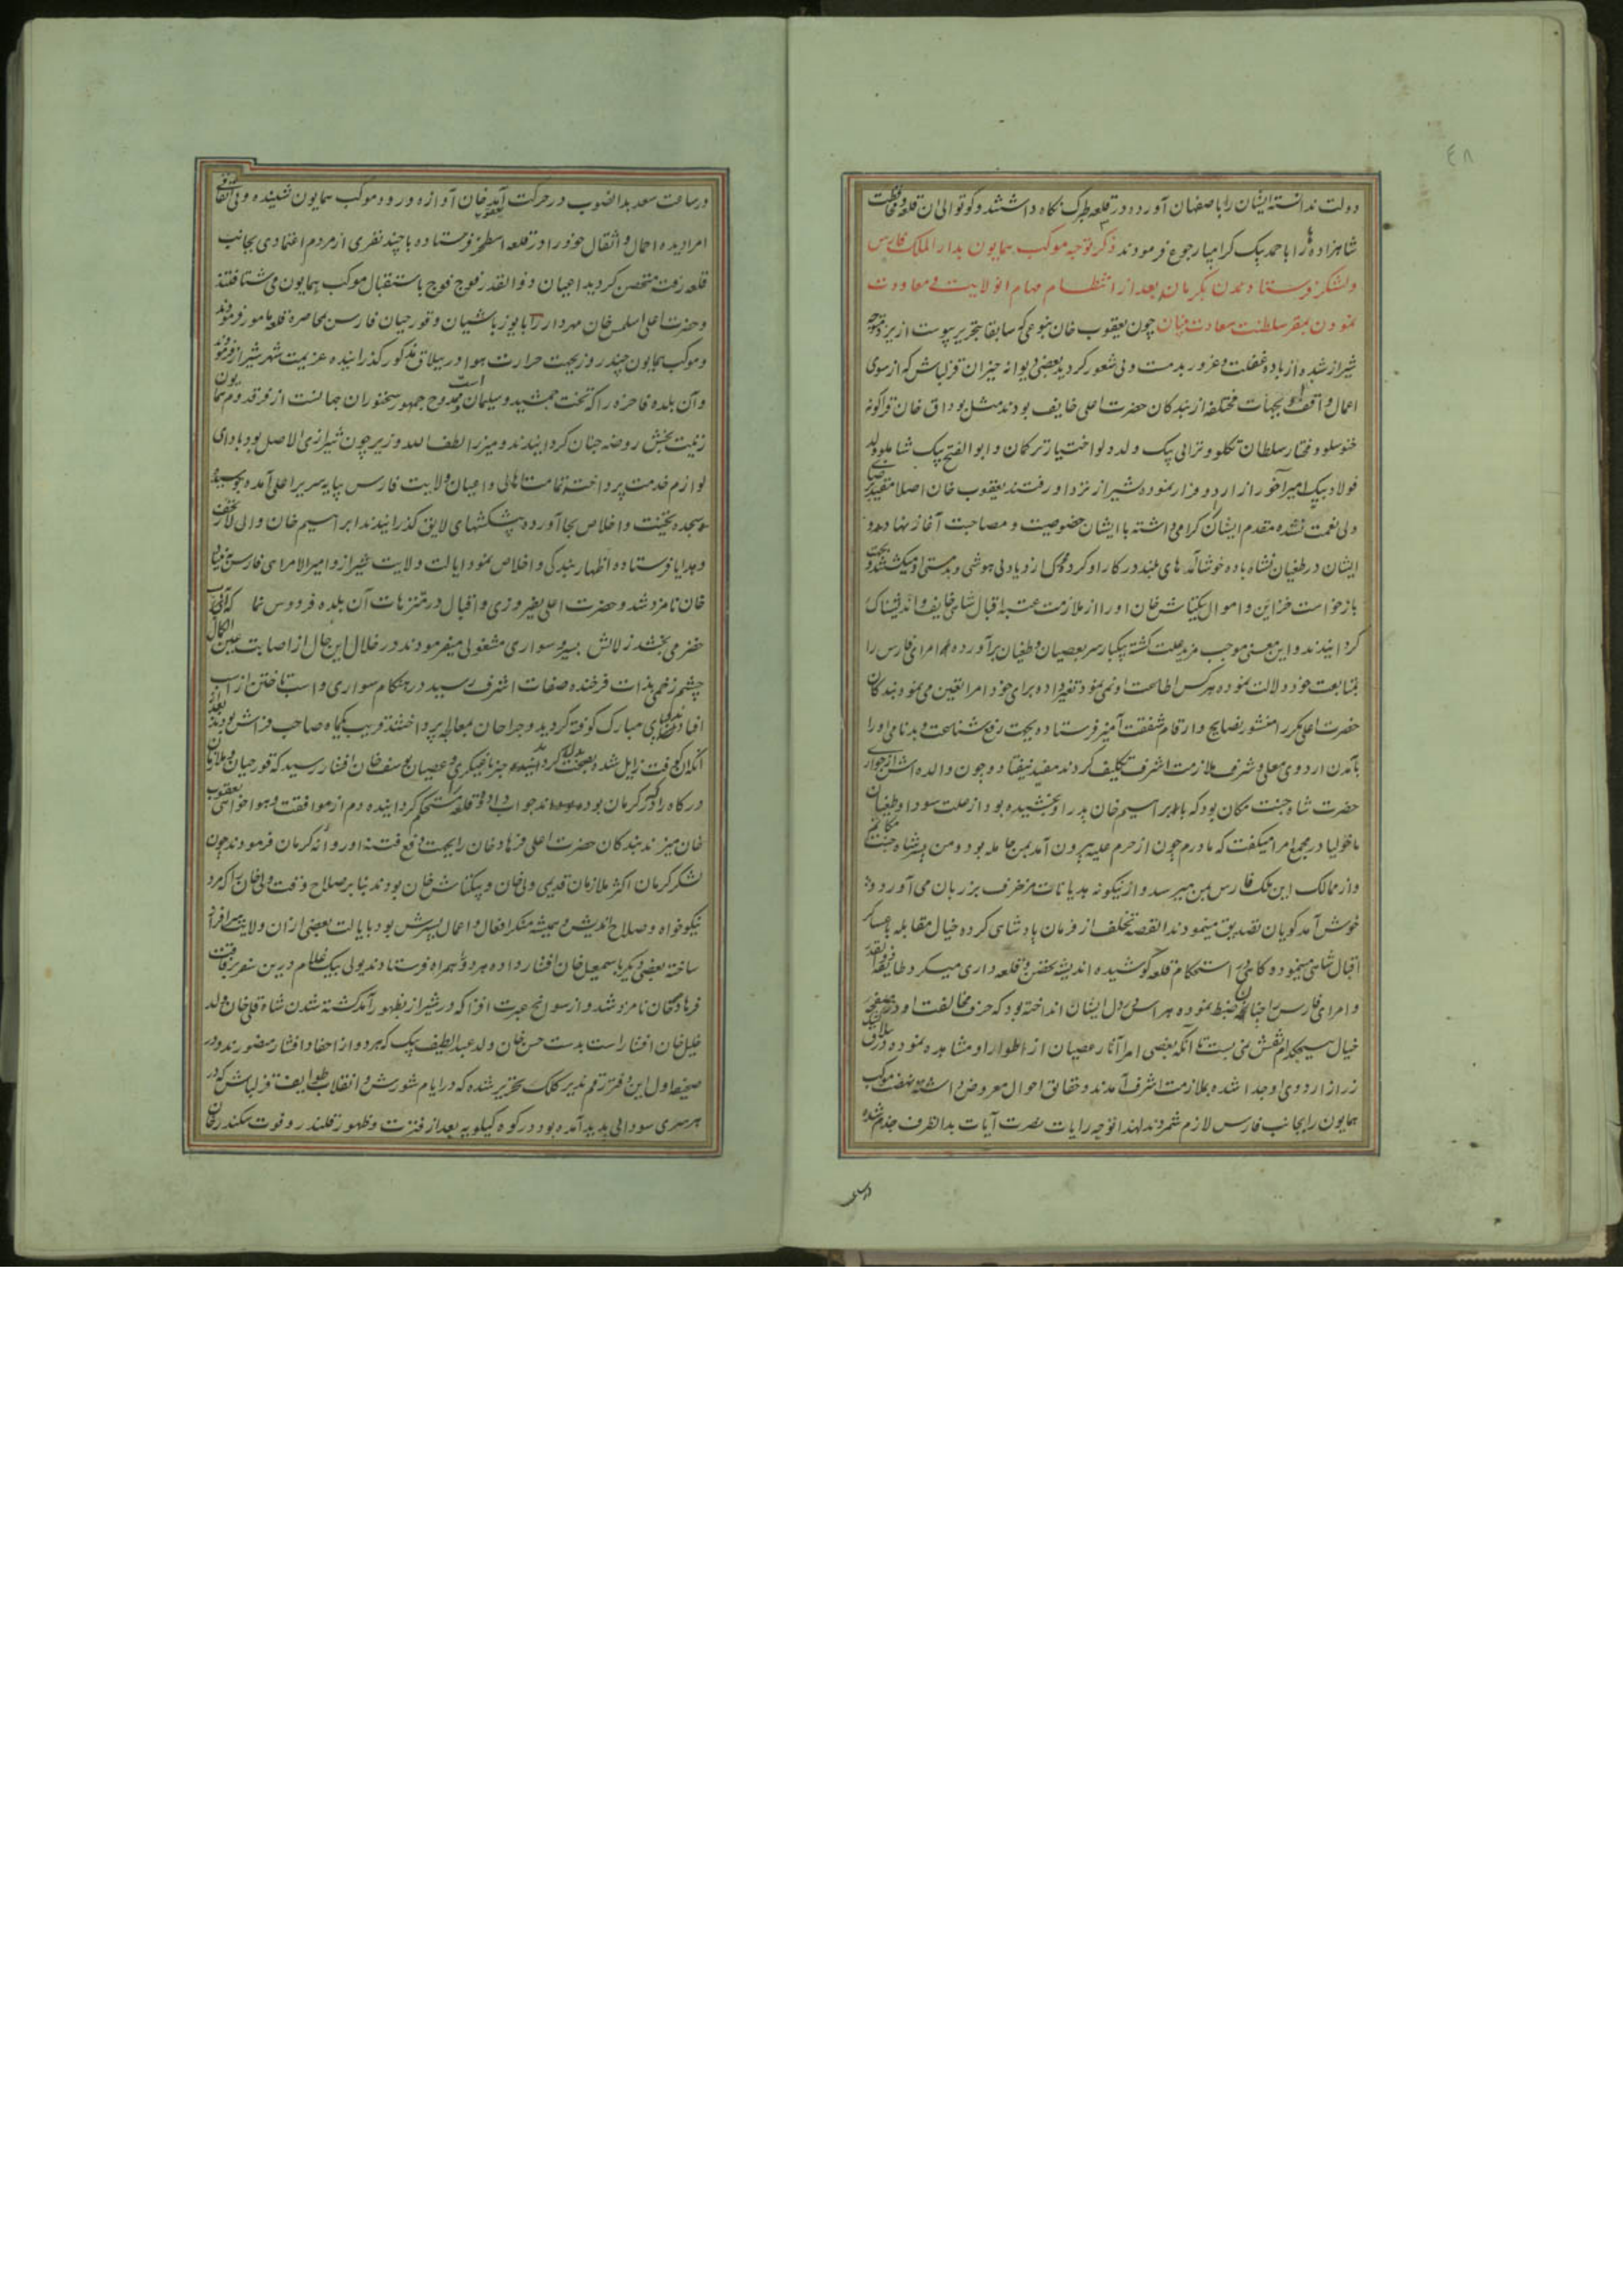 ٤٨
دولت ندانسته ایشان را باصفهان آورده در قلعه طبرک نگاه داشتند و کوتوالی آن قلعه و محافظت
شاهزاده ها را با حمد بیک کرامپا رجوع فرمودند ذکر توجه موکب همایون بدار الملک فارس
و لشکر فرستادن بکرمان بعد از انتظام مهام آن ولایت و معاودت
نمودن بمقر سلطنت سعادت بنیان چون یعقوب خان بنوعی که سابقا بتحریر پیوست از یزد متوجه
شیراز شده از باده غفلت و غرور بدمست و بی شعور گردید بعضی دیوانه خیزان قزلباش که از سوی
اعمال و بجهات مختلفه از بندگان حضرت اعلی خایف بودند مثل بوداق خان قراگونه
خنوسلو و مختار سلطان تکلو و ترابی بیک ولد دولو اختیار ترکمان و ابو الفتح بیک شاملو ولد
فولاد بیک امیر آخور از اردو فرار نموده شیراز نزد او رفتند یعقوب خان اصلا مقید
ولی نعمت نشده مقدم ایشان گرامی داشته با ایشان خصوصیت و مصاحبت آغاز نهاد و
ایشان در طغیان نشاه باده خوشامد های بلند در کار او کرده محرک ازدیاد بی هوشی و بدمستی او میگشتند و بجهت
بازخواست خزاین و اموال بیکتاش خان او را از ملازمت عتبه اقبال شاهی خایف و اندیشناک
گردانیدند و این معنی موجب مزید علت گشته بیکبار سر بعصیان و طغیان برآورده امرای فارس را
بمتابعت خود دلالت نموده هر کس اطاعت او نمی نمود تغیر داده برای خود امرا تعین می نمود بندگان
حضرت اعلی مکرر منشور نصایح و ارقام شفقت آمیز فرستاده بجهت رفع شناعت و بدنامی او را
بآمدن اردوی معلی و شرف ملازمت اشرف تکلیف کردند مفید نیفتاد و چون والده اش از جواری
حضرت شاه جنت مکان بود که بابراسیم خان پدر او بخشیده بود از علت سودا و طغیان
ماخولیا در مجمع امرا میگفت که مادرم چون از حرم علیه بیرون آمد بمن حامله بود و من پسر شاه جنت مکانیم
و از ممالک این ملک فارس بمن میرسد و از نیکونه هذیانات مزخرف بر زبان می آورد و
خوش آمد گویان تصدیق مینمودند القصه تخلف از فرمان پادشاهی کرده خیال مقابله با عساکر
اقبال شاهی مینمود و گاهی در استحکام قلعه کوشیده اندیشه تحصن و قلعه داری میکرد طایفه ذوالقدر
و امرای فارس را چنان ضبط نموده هراس در دل ایشان انداخته بود که حرف مخالفت او در
خیال هیچکدام نقش نمی بست تا آنکه بعضی امرا آثار عصیان از اطوار او مشاهده نموده
زر از اردوی او جدا شده بملازمت اشرف آمدند و حقایق احوال معروض داشته نهضت موکب
همایون را بجانب فارس لازم شمردند لهذا توجه رایات نصرت آیات بدانطرف جزم شده
در ساعت سعد بدالضوب در حرکت آمد یعقوب خان آوازه ورود موکب همایون شنیده و بی اتفاقی
امرا دیده احمال و اثقال خود را در قلعه اصطخر فرستاده با چند نفری از مردم اعتمادی بجانب
قلعه رفته متحصن گردید اعیان ذوالقدر فوج فوج باستقبال موکب همایون می شتافتند
و حضرت اعلی اسلمس خان مهردار را با یوزباشیان و قورچیان فارس بمحاصره قلعه مامور فرمودند
و موکب همایون چند روز بجهت حرارت هوا در ییلاق مذکور گذرانیده عزیمت شهر شیراز فرمودند
و آن بلده فاخره را که تخت جمشید و سلیمان است و ممدوح جمهور سخنوران جهانست از فر قدوم همایون
زینت بخش روضه جنان گردانیدند و میرزا لطف الله وزیر چون شیرازی الاصل بود بادای
لوازم خدمت پرداخته تمامت اهالی و اعیان ولایت فارس بپایه سریر اعلی آمده
سجده تحیت و اخلاص بجا آورده پیشکشهای لایق گذرانیدند ابراسیم خان والی لار تحف
و هدایا فرستاده اظهار بندگی و اخلاص نمود ایالت ولایت شیراز و امیر الامرای فارس
خان نامزد شد و حضرت اعلی بفیروزی و اقبال در متنزهات آن بلده فردوس نما که آب
خضر می بخشد زلالش بسیر و سواری مشغولی میفرمودند در خلال این حال از اصابت عین الکمال
چشم زخمی بذات فرخنده صفات اشرف رسید در هنگام سواری و اسب تاختن از اسب
افتاده پای مبارک کوفته گردید و جراحان بمعالجه پرداختند قریب یکماه صاحب فراش بودند بعد
از آن کوفت زایل شده بصحت گردانیده خبر یاغیگری و عصیان یوسف خان افشار رسید که قورچیان و ملازمان
درگاه را که در کرمان بوده اند جواب داده و قلعه را مستحکم گردانیده دم از موافقت و هواخواهی یعقوب
خان میزند بندگان حضرت اعلی فرهاد خان را بجهت دفع فتنه او روانه کرمان فرمودند چون
لشکر کرمان اکثر ملازمان قدیمی ولیخان و بیکتاش خان بودند بنا بر صلاح وقت ولیخان را که مرد
نیکوخواه و صلاح اندیش و همیشه منکر افعال و اعمال پسرش بود بایالت بعضی از آن ولایت سرافراز
ساخته بعضی دیگر باسمعیل خان افشار داده هر دو همراه فرستادند و ولی بیک غلام درین سفر برفاقت
فرهاد خان نامزد شد و از سوانح عبرت افزا که در شیراز بظهور آمد گشته شدن شاه قلی خان ولد
خلیل خان افشار است بدست حسن خان ولد عبد اللطیف بیک که هر دو از احفاد افشار منصورند و در
صحیفه اول این دفتر رقم پذیر کلک تحریر شده که در ایام شورش و انقلاب طوایف قزلباش که در
هر سری سودایی پدید آمده بود در کوه کیلویه بعد از فترت و ظهور قلندر و فوت سکندر خان